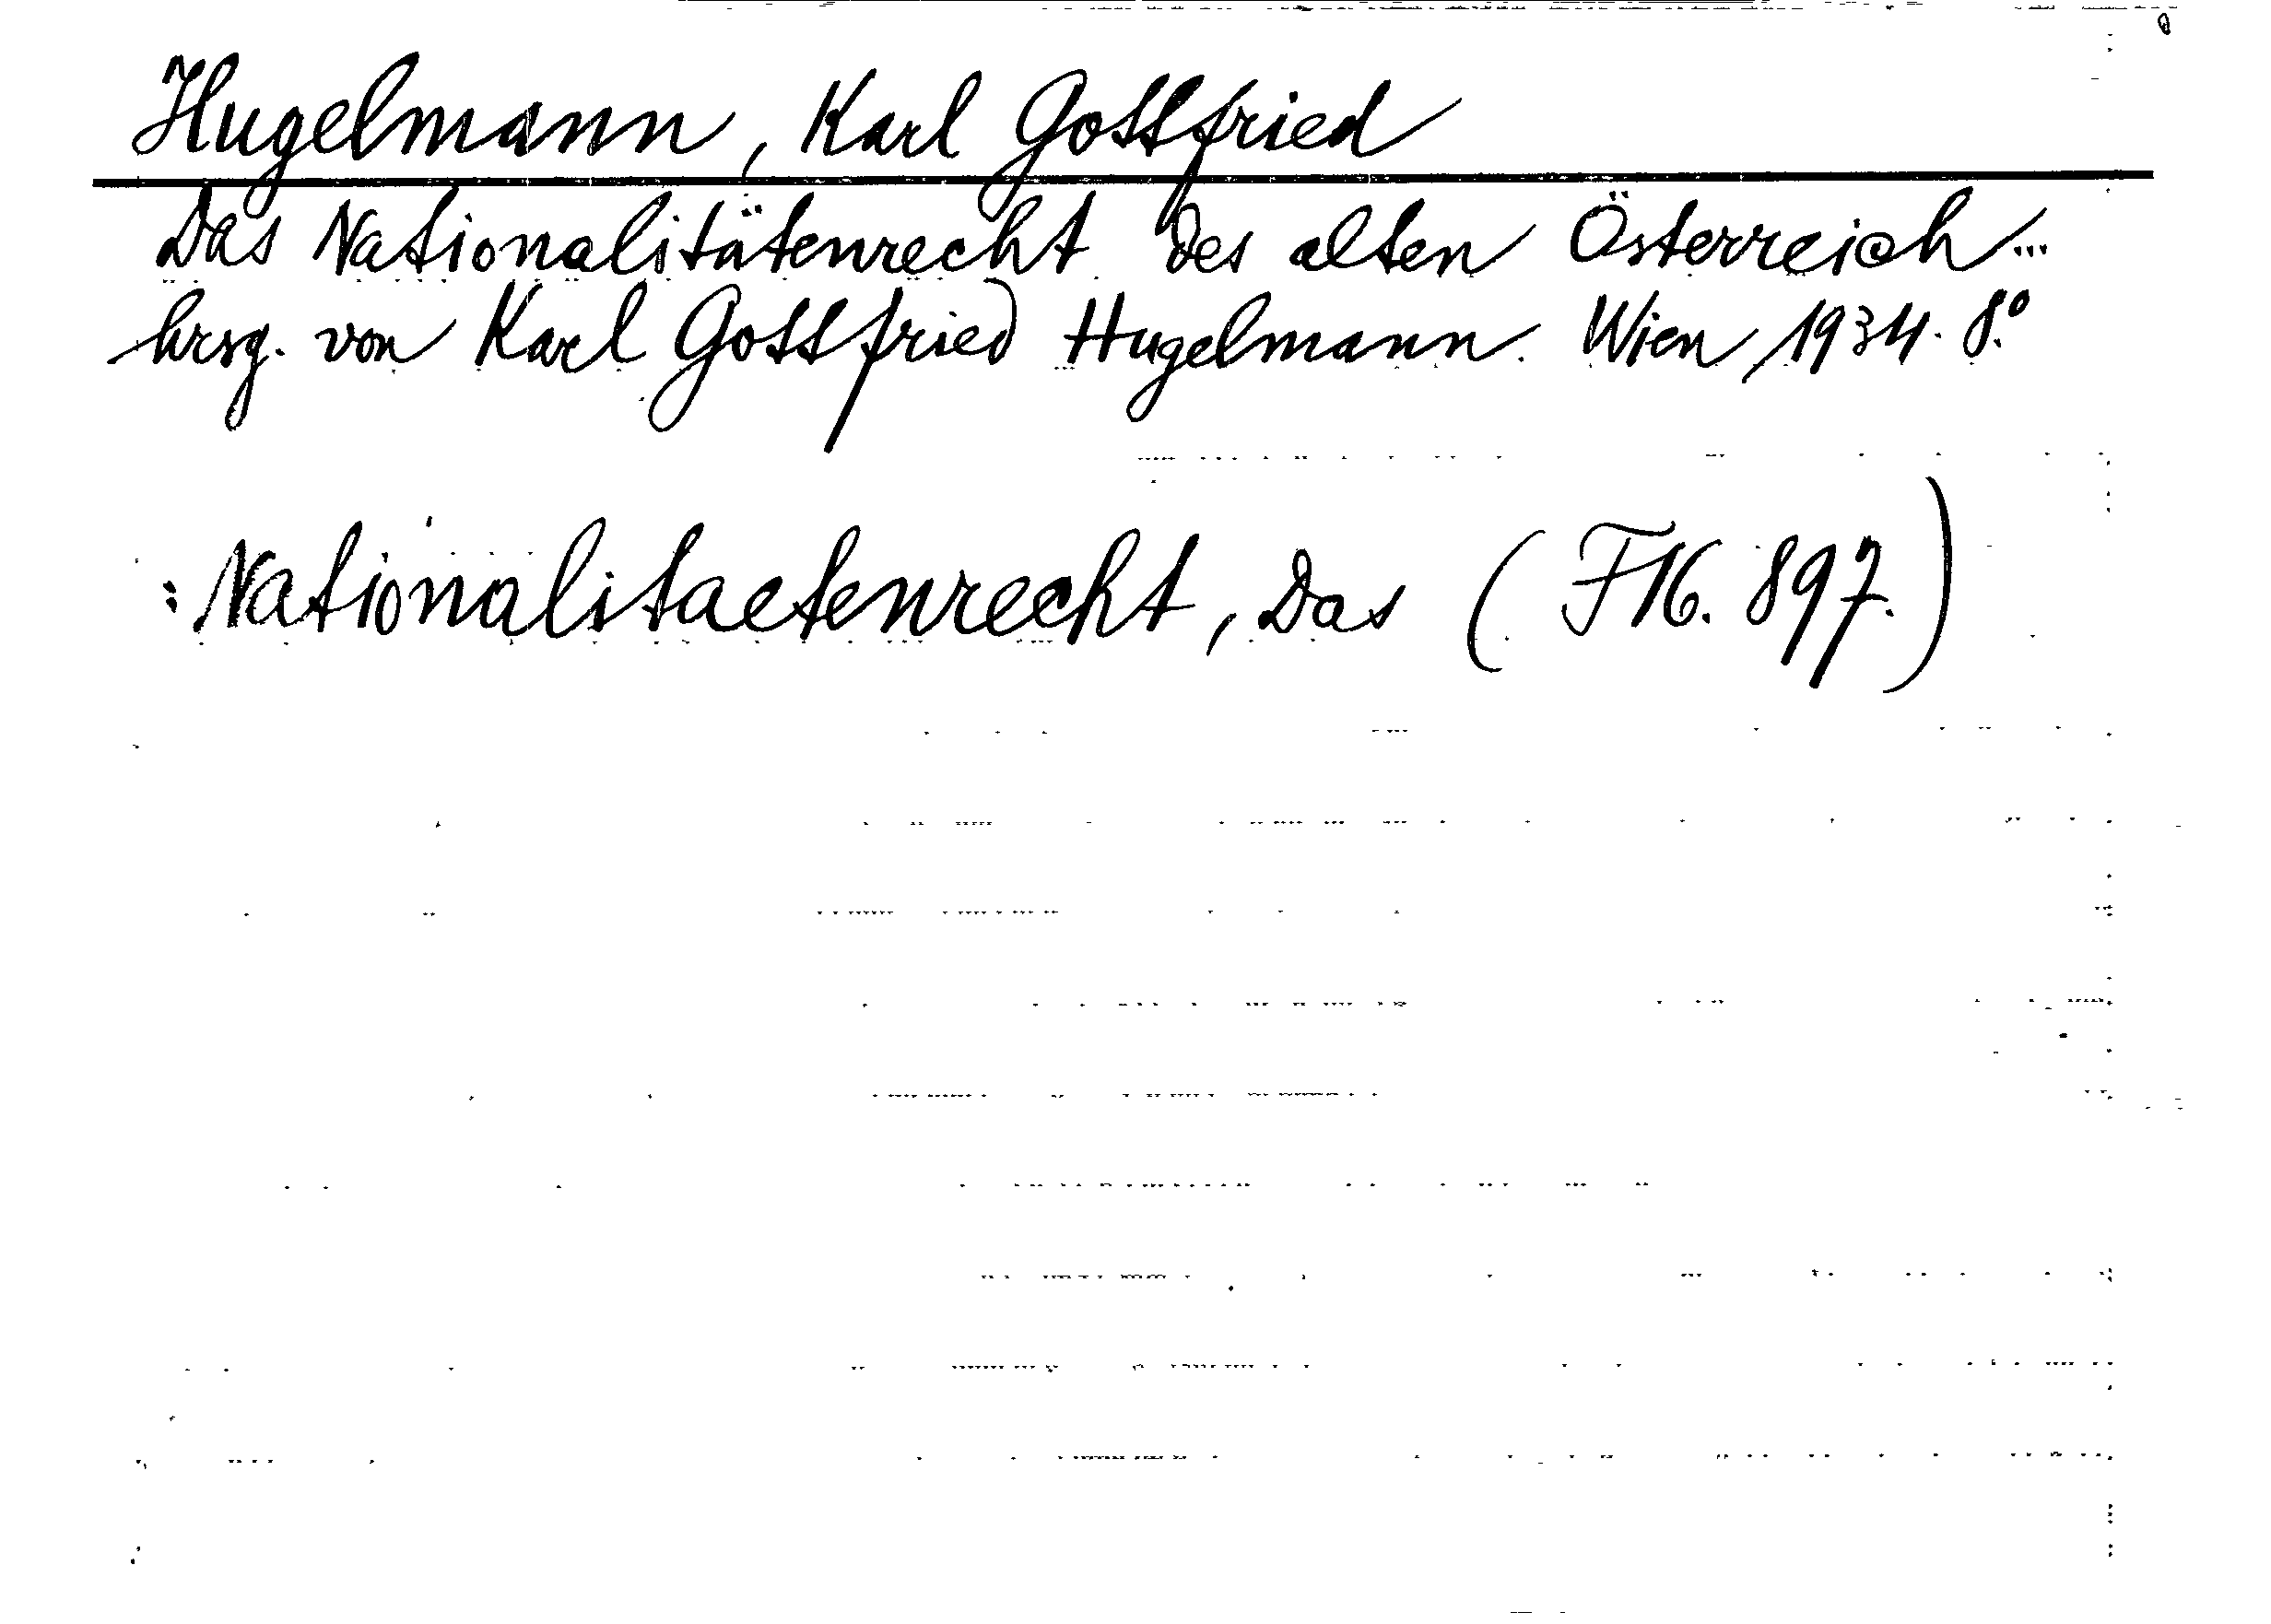 Hugelmann, Karl Gottfried
Das Nationalitätenrecht des alten Österreich...
hrsg. von Karl Gottfried Hugelmann. Wien, 1934. 8.°
: Nationalitaetenrecht, Das (F16. 897.)